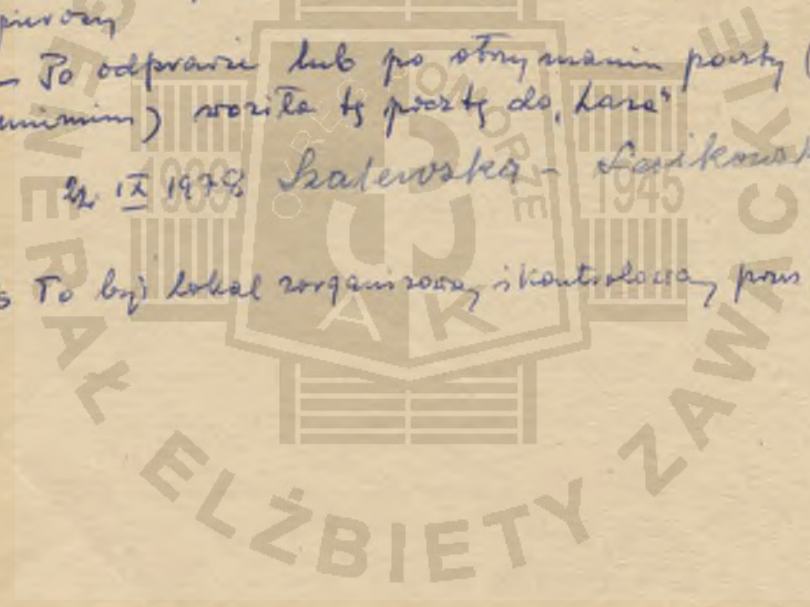 pierwszy
– Po odprawie lub po otrzymaniu poczty (
woziła tę pocztę do „Lasa"
IX 1978 Szalewska -
To był lokal zorganizowany i kontrolowany przez
GENERAŁ ELŻBIETY ZAWACKIEJ
OKRĘG POMORZE
1939 1945
AK